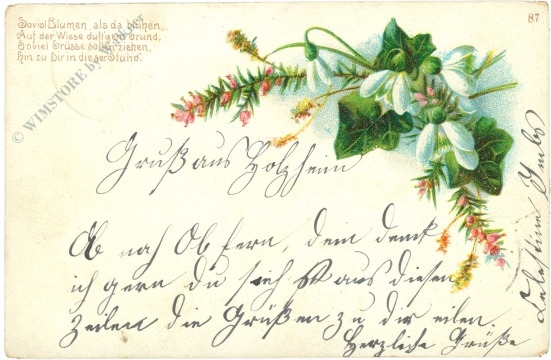 Soviel Blumen, als da blühen,
Auf der Wiese duft'gem Grund,
Soviel Grüsse sollen ziehen,
Hin zu Dir in dieser Stund'.
87
© WIMSTORE by
Gruß aus Holzheim
Ob nah Ob fern, dein denk
ich gern du sieh aus diesen
Zeilen die Grüßen zu dir eilen.
Herzliche Grüße
Celestine